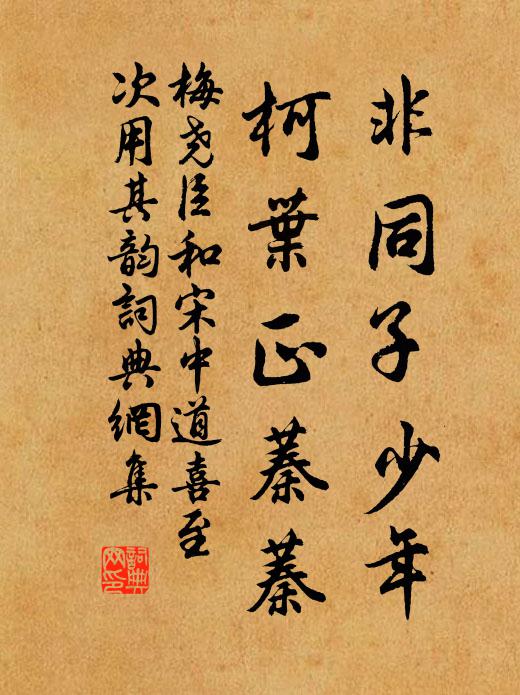 非同子少年
柯葉正蓁蓁
梅尧臣和宋中道喜至
次用其韵詞典網集
詞典網印